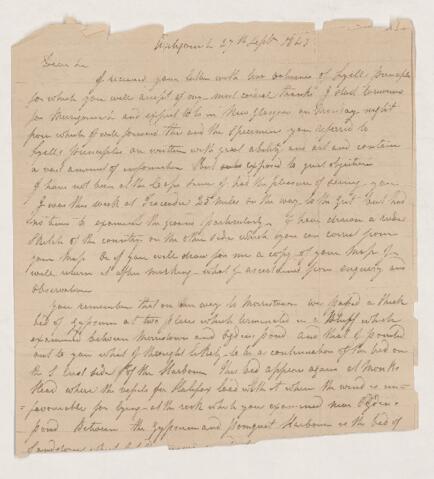 Antigonish 27th Sept 1843
Dear Sir
I received your letter with two volumes of Lyells Principles
for which you will accept of my most cordial thanks. I start tomorrow
for Merigomish and expect to be in New Glasgow on Tuesday night
from which I will forward this and the specimen you referred to
Lyells principles are written with great ability and art and contain
a vast amount of information But are exposed to great objections
I have not been at the since I had the pleasure of seeing you
I was this week at Tracadie 25 miles on the way to the Gut but had
no time to examine the ground particularly. I have drawn a rude
sketch of the country on the other side which you can correct from
your Map Or if you will draw for me a copy of your Map I
will return it after marking what I ascertained from enquiry and
observation
You remember that on our way to Morristown we passed a thick
bed of Gypsum at two places which terminated in a Bluff which
examined between Morristown and Ogdens pond and that I pointed
out to you what I thought likely to be a continuation of the bed on
the S. East side of the Harbour. This bed appears again at Monks
Head where the vessels for Halifax load with it when the wind is un-
favourable for lying at the rock which you examined near Ogdens
pond Between the gypsum and Pomquet Harbour is the bed of
Sandstone